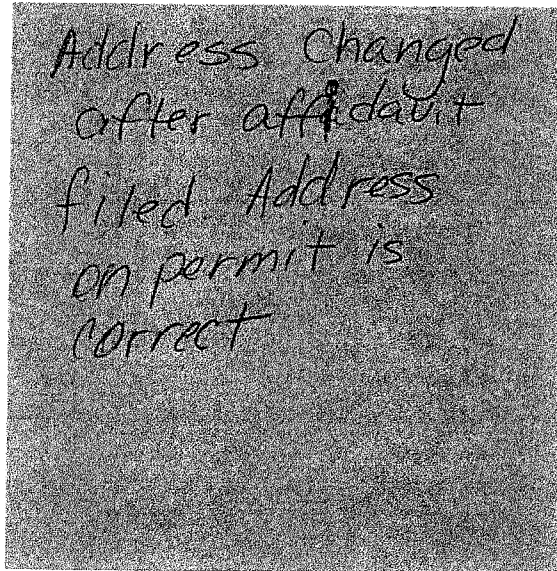 Address Changed
after affidavit
filed. Address
on permit is
correct